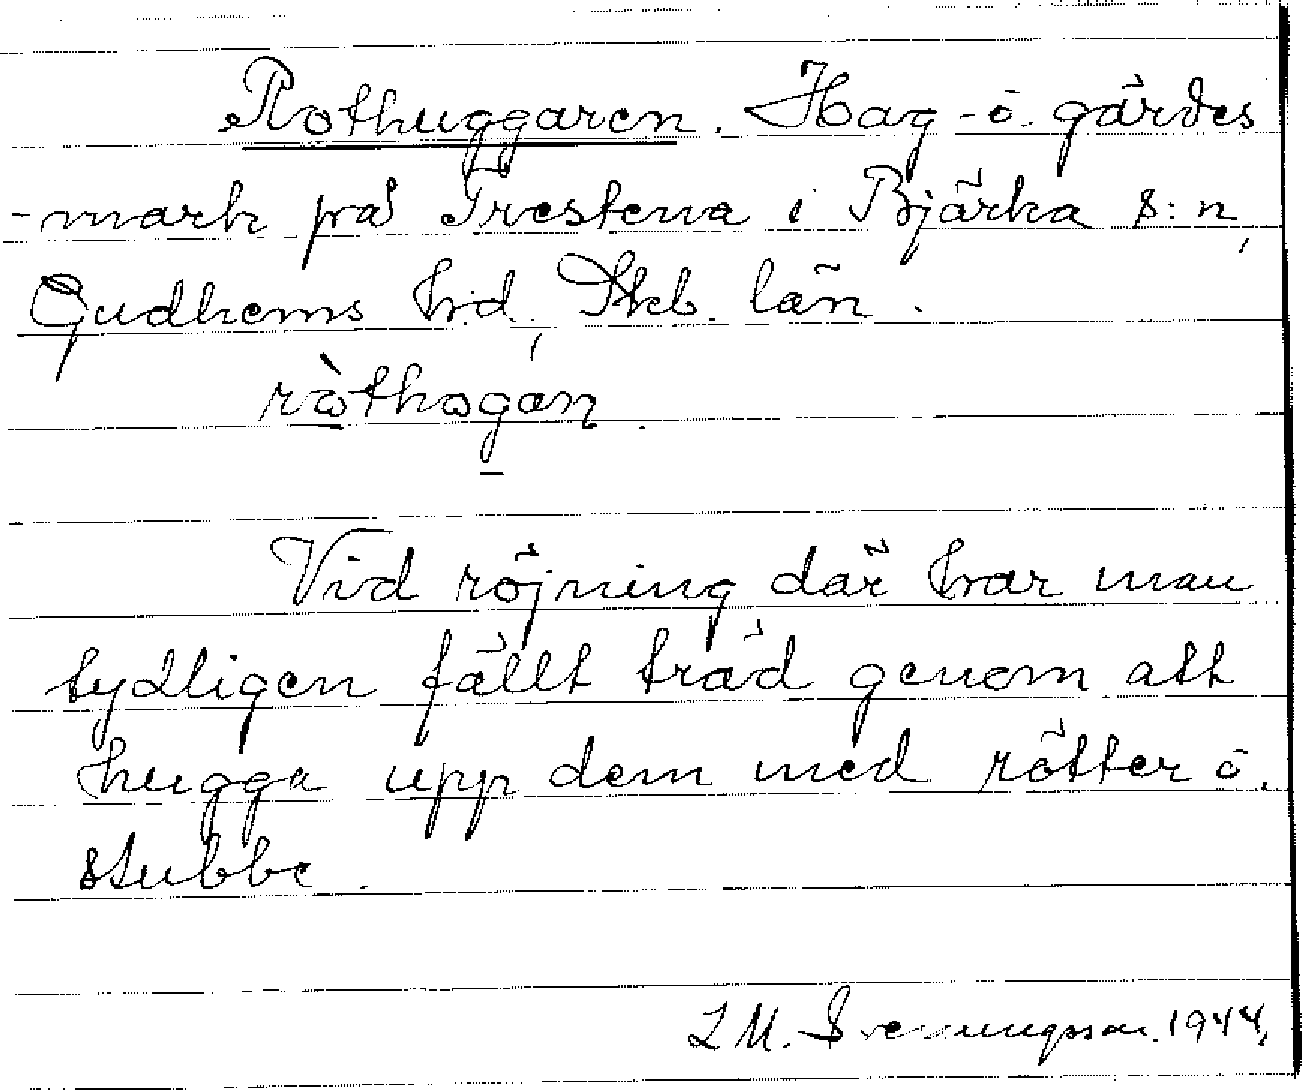 Rothuggaren. Hag- o. gärdes
-mark på Trestena i Bjärka s:n,
Gudhems hd, Skb. län.
ròthogán.
Vid röjning där har man
tydligen fällt träd genom att
hugga upp dem med rötter o.
stubbe.
L M. Svenungsson. 1944.